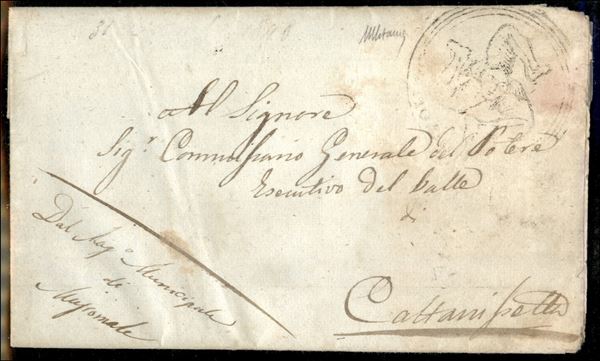 Al Signore
Sig.r Commissario Generale del Potere
Esecutivo del Valle
di
Caltanissetta
Dal Mag.o Municipale
di
Mussomele